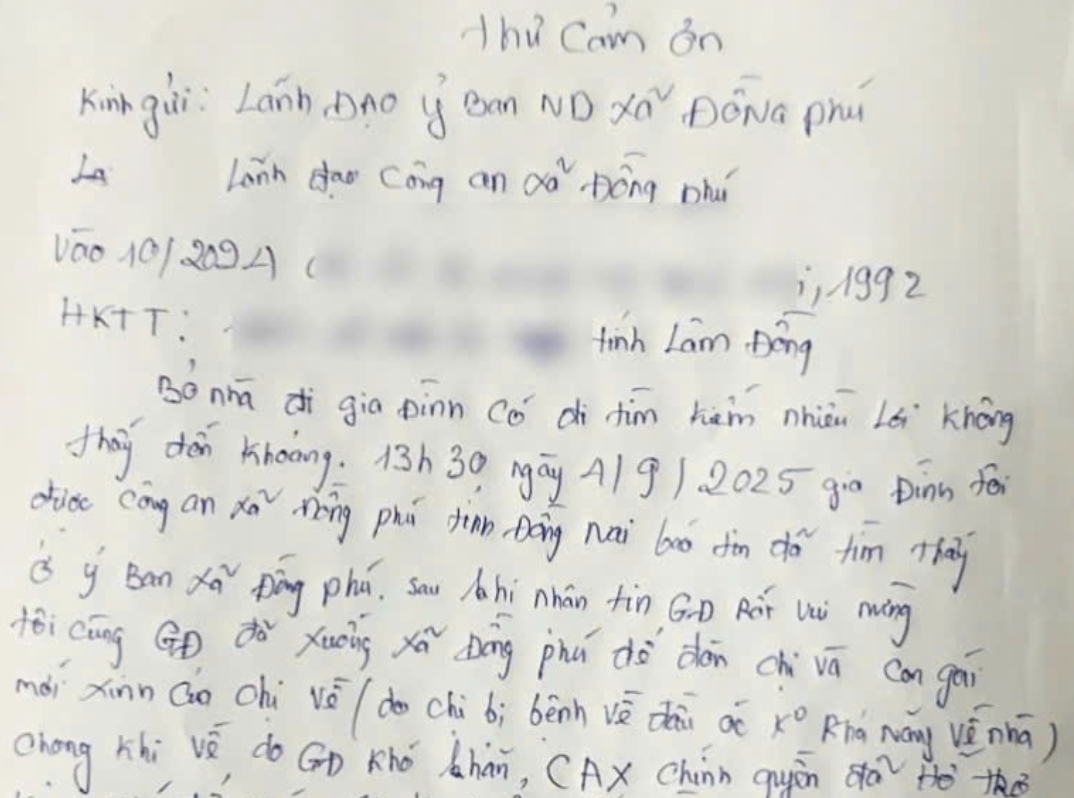 Thư Cảm ơn
Kính gửi: Lãnh ĐẠO ỷ Ban ND xã ĐỒNG phú
Lãnh đạo Công an xã Đồng phú
Vào 10/2024 (
i, 1992
HKTT:
tỉnh Lâm Đồng
Bỏ nhà đi gia Đình Có đi tìm kiếm nhiều Lơi không
thấy đến khoảng. 13h 30 ngày 4/9/2025 gia Đình tôi
được công an xã Đồng phú tỉnh Đồng Nai báo tin đã tìm thấy
ở ỷ Ban xã Đồng phú. sau khi nhân tin GĐ Rất vui mừng
tôi cùng GĐ đã xuống xã Đồng phú để đón chi và con gái
mới xinh của chi về (do chi bị bệnh về đầu óc Kº Khả năng Về nhà)
Chong khi về do GĐ khó khăn, CAX chính quyền đã Hỗ Trợ